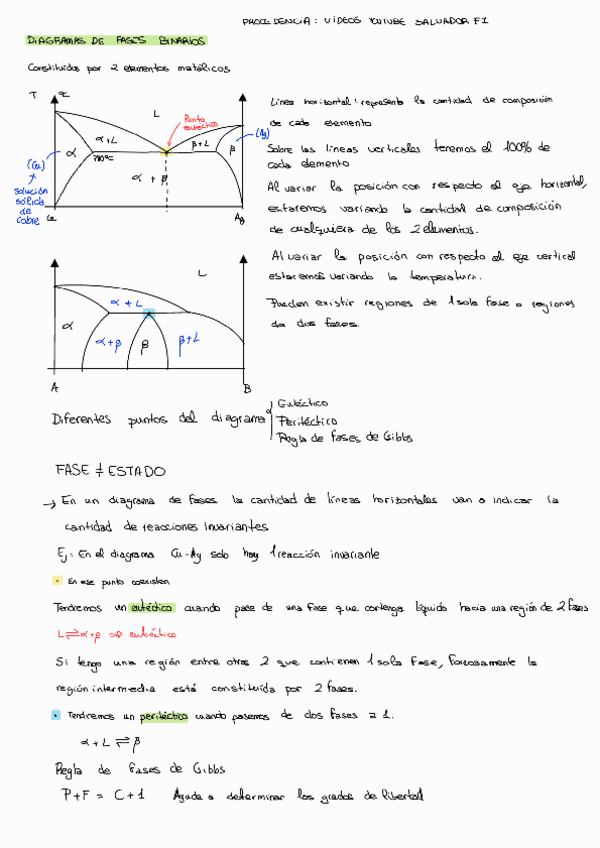 PROCEDENCIA: VIDEOS YOUTUBE SALVADOR FI
DIAGRAMAS DE FASES BINARIOS
Constituidos por 2 elementos metálicos
T
L
Punto eutéctico
α+L
β+L
α
β
(Ag)
780ºC
α + β
(Cu)
solución
sólida
de
cobre
Cu
Ag
Línea horizontal: representa la cantidad de composición
de cada elemento
Sobre las líneas verticales tenemos el 100% de
cada elemento
Al variar la posición con respecto al eje horizontal,
estaremos variando la cantidad de composición
de cualquiera de los 2 elementos.
Al variar la posición con respecto el eje vertical
estaremos variando la temperatura.
Pueden existir regiones de 1 sola fase o regiones
de dos fases.
L
α + L
α
α+β
β
β+L
A
B
Diferentes puntos del diagrama
Eutéctico
Peritéctico
Regla de fases de Gibbs
FASE ≠ ESTADO
→ En un diagrama de fases la cantidad de líneas horizontales van a indicar la
cantidad de reacciones invariantes
Ej: En el diagrama Cu-Ag solo hay 1 reacción invariante
· En ese punto coexisten
Tendremos un eutéctico cuando pase de una fase que contenga líquido hacia una región de 2 fases
L⇌α+β ⇒ eutéctico
Si tengo una región entre otras 2 que contienen 1 sola fase, forzosamente la
región intermedia está constituida por 2 fases.
· Tendremos un peritéctico cuando pasemos de dos fases a 1.
α+L ⇌ β
Regla de fases de Gibbs
P+F = C+1 Ayuda a determinar los grados de libertad